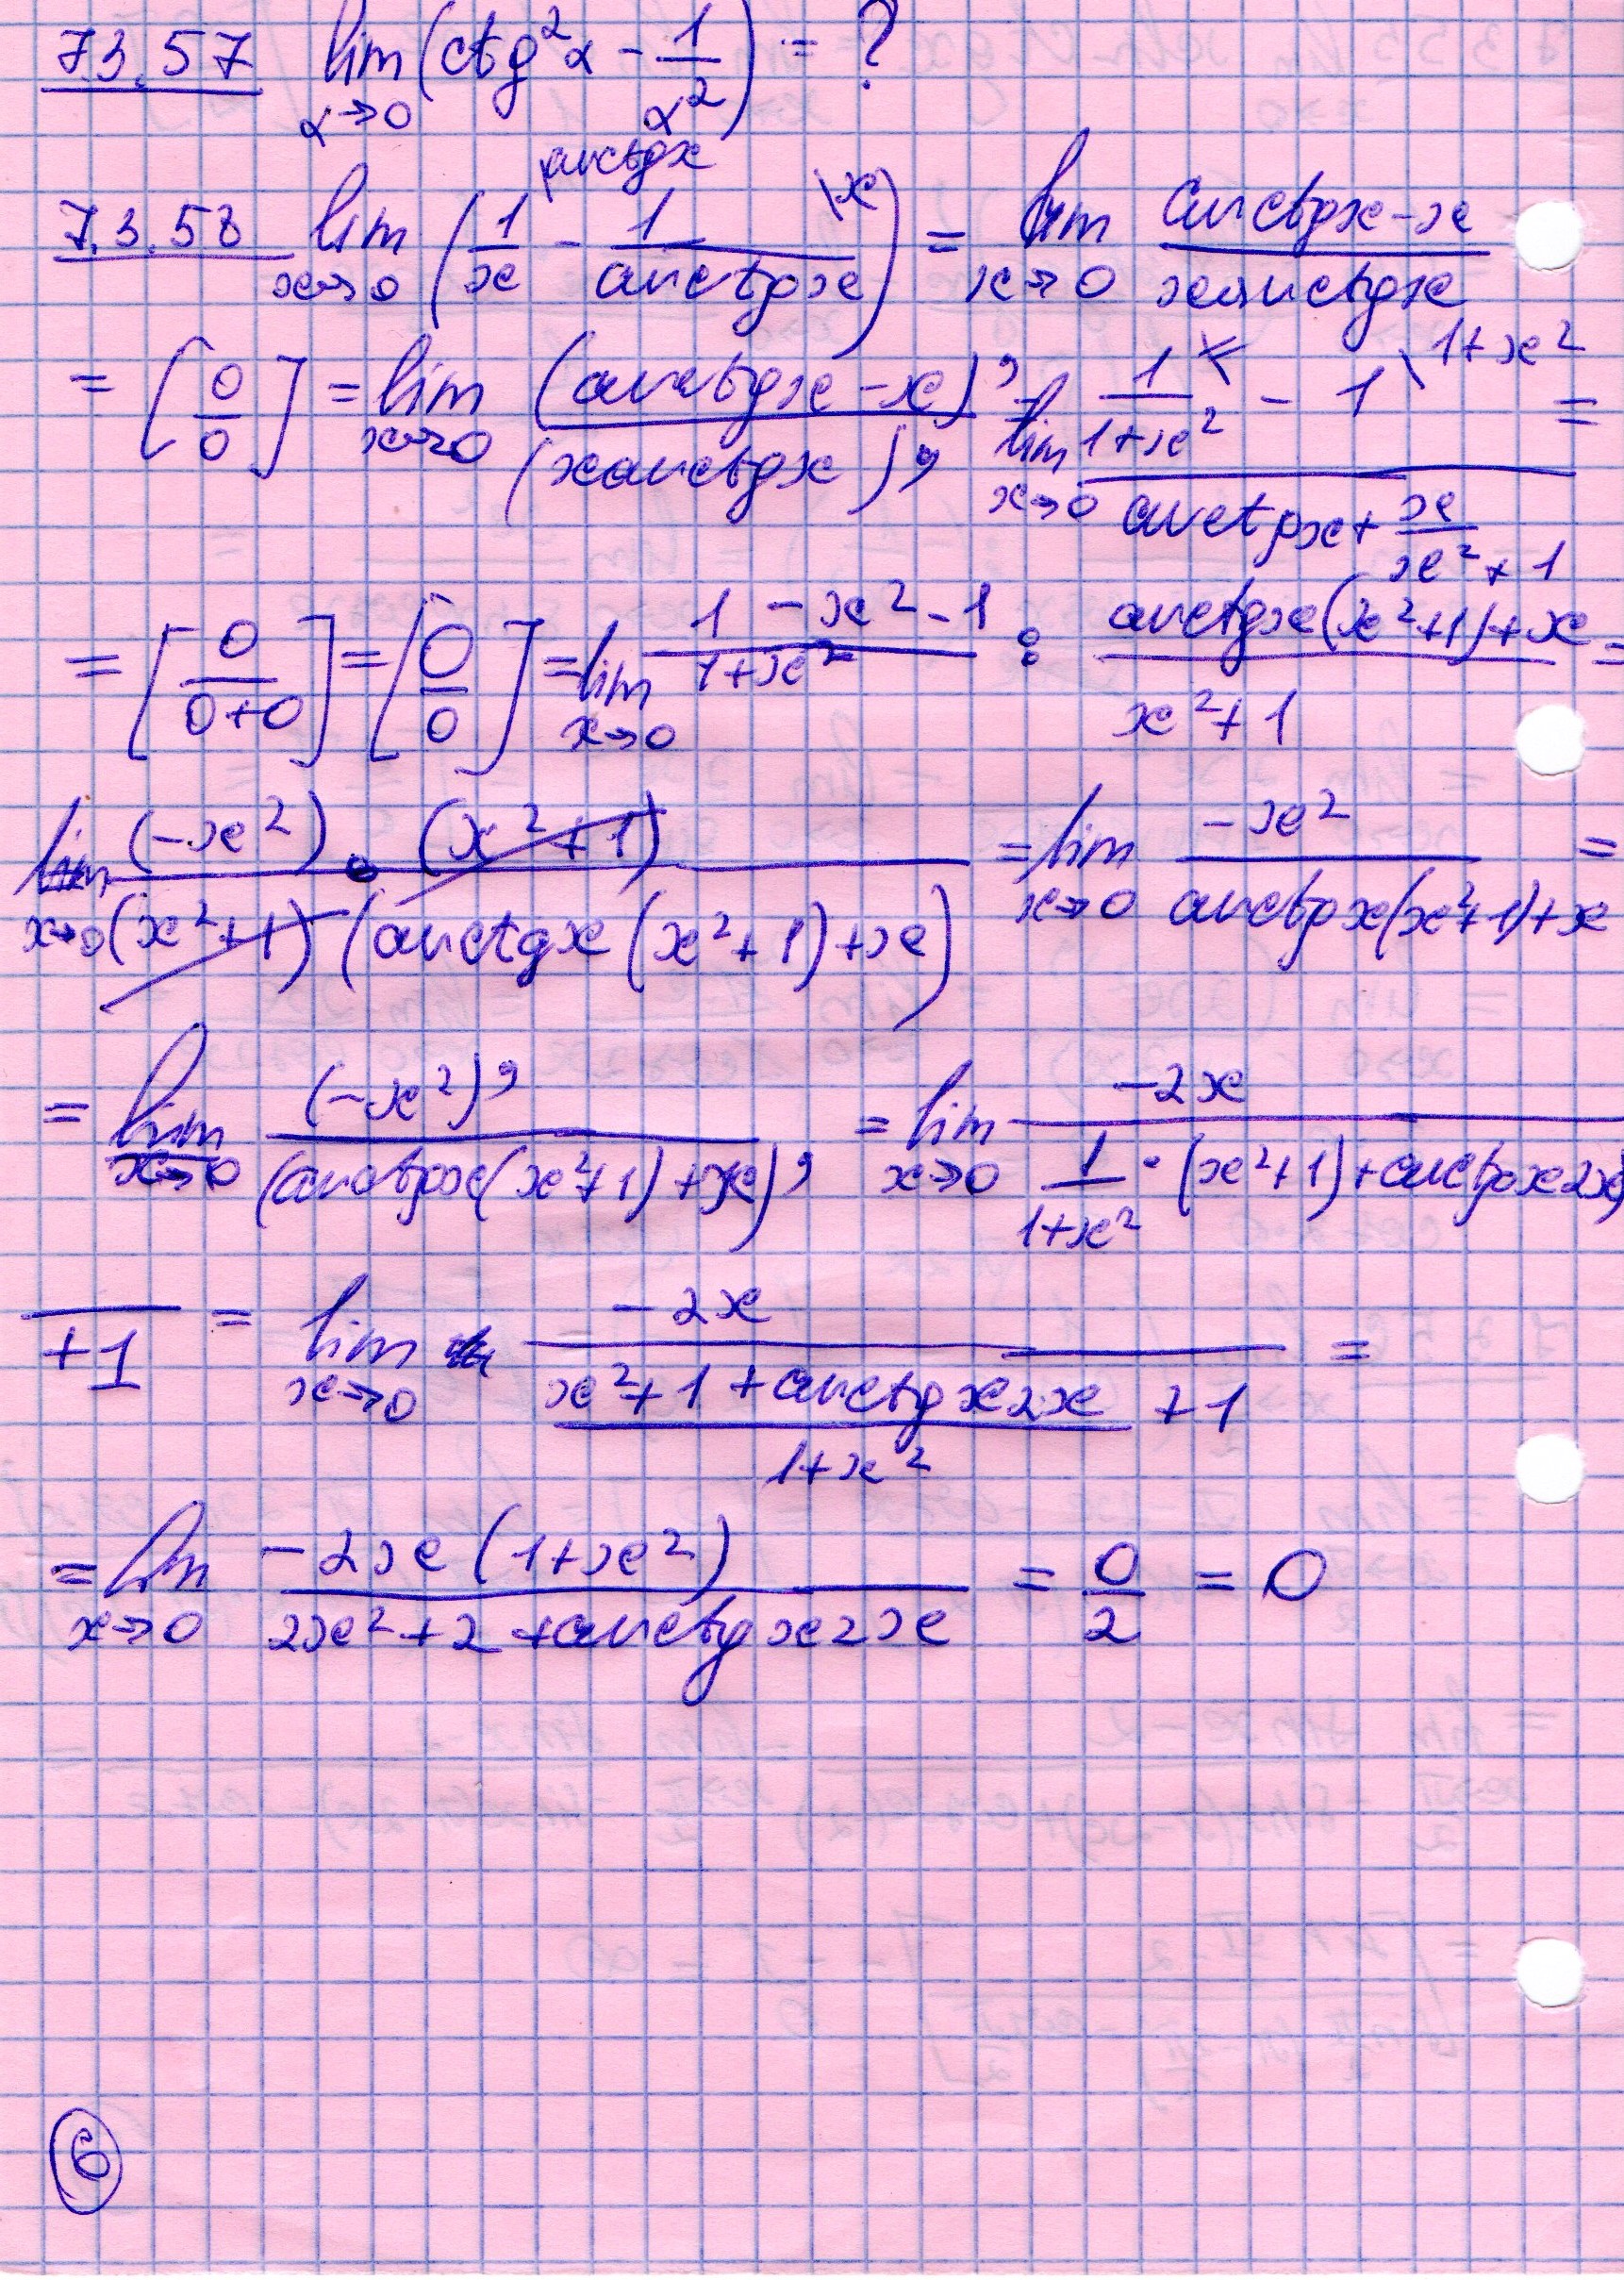 7.3.57 lim x→0 (ctg²x - 1/x²) = ?
7.3.58 lim x→0 (1/x \arctgx - 1/arctgx \x) = lim x→0 (arctgx-x)/(xarctgx)
= [0/0] = lim x→0 (arctgx-x)'/(xarctgx)' = lim x→0 (1/(1+x²) - 1\1+x²)/(arctgx+x/(x²+1)) =
= [0/(0+0)] = [0/0] = lim x→0 (1-x²-1)/(1+x²) : (arctgx(x²+1)+x)/(x²+1) =
lim x→0 (-x²)·(x²+1)/((x²+1)(arctgx(x²+1)+x)) = lim x→0 -x²/(arctgx(x²+1)+x) =
= lim x→0 (-x²)'/(arctgx(x²+1)+x)' = lim x→0 -2x/(1/(1+x²)·(x²+1)+arctgx2x
+1) = lim x→0 -2x/((x²+1+arctgx2x)/(1+x²) +1) =
= lim x→0 -2x(1+x²)/(2x²+2+arctgx2x) = 0/2 = 0
6